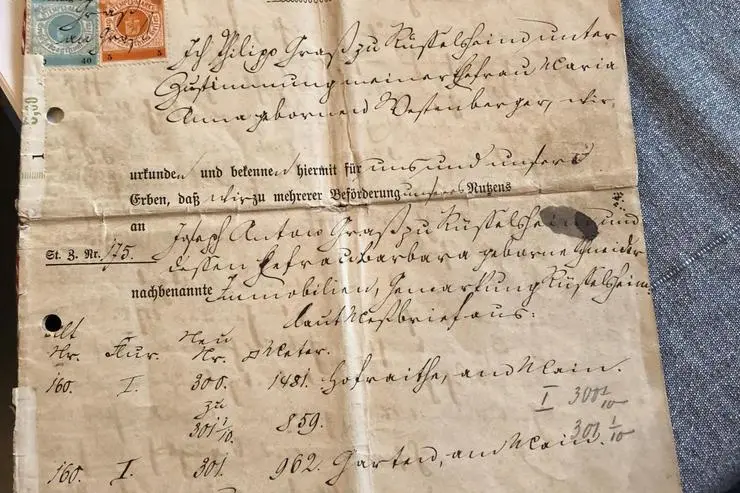 40
5 5
Ich Philipp Graß zu Rüsselsheim unter
Zustimmung meiner Ehefrau Maria
Anna geborenen Westenberger, wir,
urkunden und bekennen hiermit für uns und unsere
Erben, daß wir zu mehrerer Beförderung unseres Nutzens
an Joseph Anton Graß zu Rüsselsheim und
St. Z. Nr. 175. dessen Ehefrau Barbara geborne Schneider
nachbenannte Immobilien, Gemarkung Rüsselsheim
laut Meßbrief aus:
Alt Neu
Nr. Flur. Nr. □Meter.
160. I. 300. 1481. Hofraithe, am Main.
zu I 300 1/10
301 1/10. 859. 301 1/10
160. I. 301. 962. Garten, am Main.